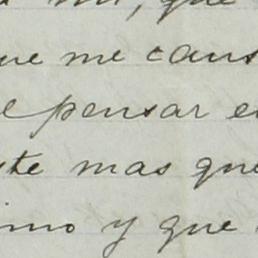 que
que me caus
el pensar e
ste mas que
imo y que